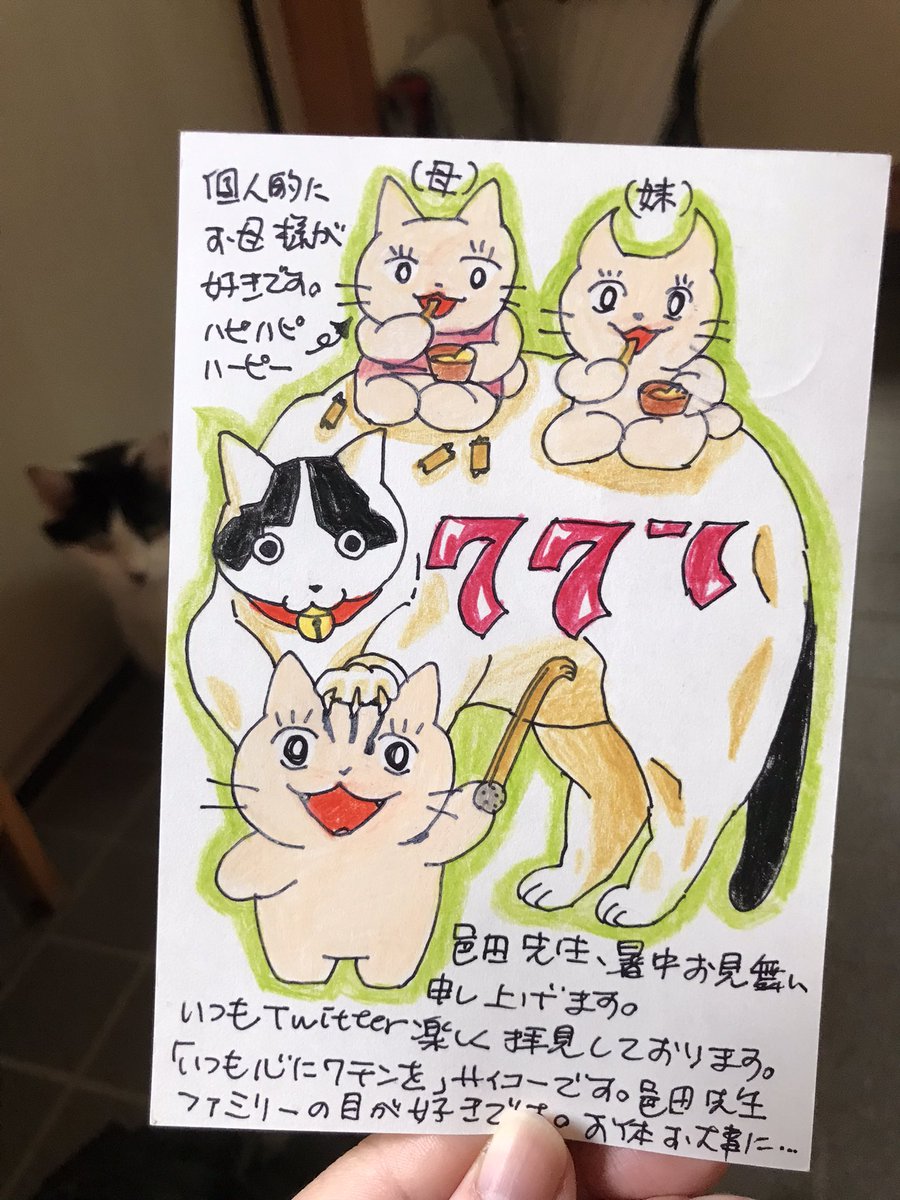 個人的に
お母様が
好きです。
ハピハピ
ハーピー
(母)
(妹)
777
邑田先生、暑中お見舞い
申し上げます。
いつもTwitter楽しく拝見しております。
「いつも心にワテンを」サイコーです。邑田先生
ファミリーの目が好きです。お体お大事に…